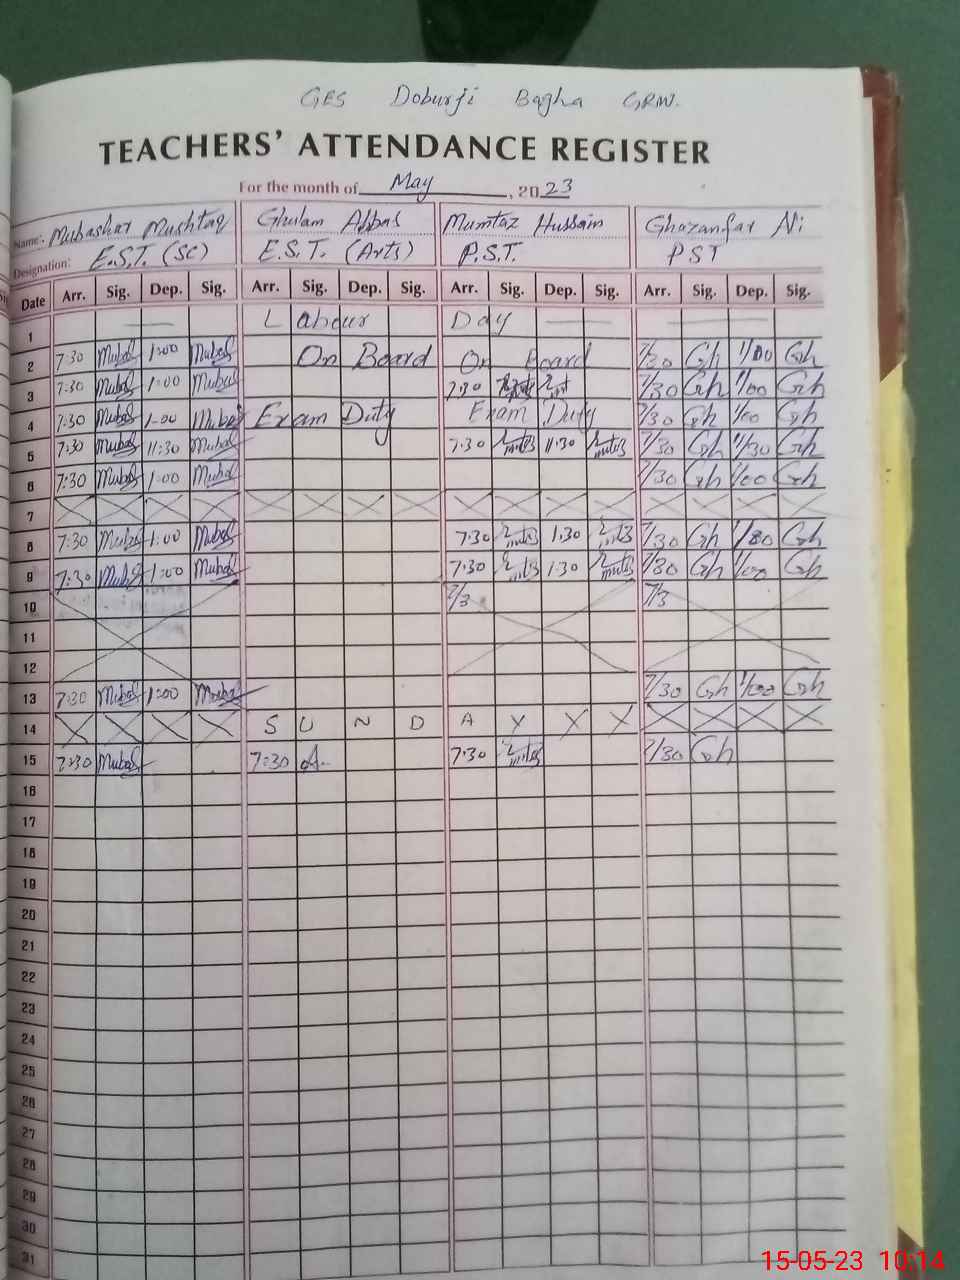 GES Doburji Bagha GRW.
TEACHERS' ATTENDANCE REGISTER
For the month of May, 2023
Name: Mubashar Mushtaq Ghulam Abbas Mumtaz Hussain Ghazanfar Ali
Designation: E.S.T. (SC) E.S.T. (Arts) P.S.T. PST
Date Arr. Sig. Dep. Sig. Arr. Sig. Dep. Sig. Arr. Sig. Dep. Sig. Arr. Sig. Dep. Sig.
1 Labour Day
2 7:30 Mubas 1:00 Mubas On Board On Board 7/30 Gh 1/00 Gh
3 7:30 Mubas 1:00 Mubas 7:30 7/30 Gh 1/00 Gh
4 7:30 Mubas 1:00 Mubas Exam Duty Exam Duty 7/30 Gh 1/00 Gh
5 7:30 Mubas 11:30 Mubas 7:30 11:30 7/30 Gh 11/30 Gh
6 7:30 Mubas 1:00 Mubas 7/30 Gh 1/00 Gh
7
8 7:30 Mubas 1:00 Mubas 7:30 1:30 7/30 Gh 1/00 Gh
9 7:30 Mubas 1:00 Mubas 7:30 1:30 7/30 Gh 1/00 Gh
10 7/3 7/3
11
12
13 7:30 Mubas 1:00 Mubas 7/30 Gh 1/00 Gh
14 S U N D A Y
15 7:30 Mubas 7:30 7:30 7/30 Gh
16
17
18
19
20
21
22
23
24
25
26
27
28
29
30
31
15-05-23 10:14